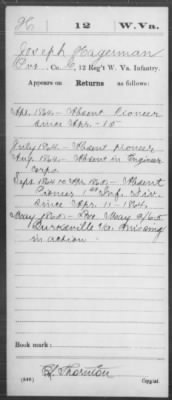 H | 12 | W. Va.
Joseph Hagerman
Pvt., Co. C, 12 Reg't W. Va. Infantry.
Appears on Returns as follows:
Apr. 1864 - Absent Pioneer
since Apr. -15
July 1864 - Absent pioneer
Aug. 1864 - Absent in Engineer
Corps.
Sept. 1864 to Apr. 1865 - Absent
Pioneer 1st Inf. Div.
since Apr. 11 - 1864.
May 1865 - May 2/65
Burksville Va. missing
in action.
Book mark:
Thornton
(546) Copyist.